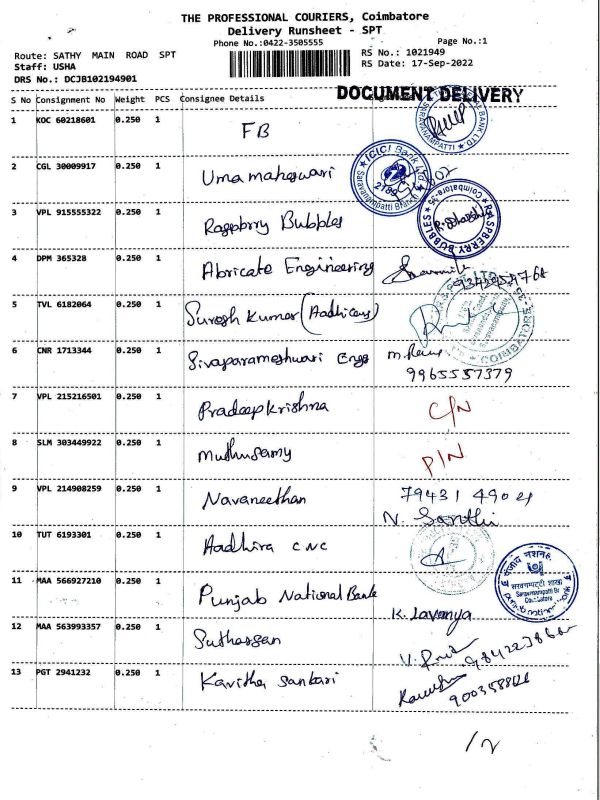 THE PROFESSIONAL COURIERS, Coimbatore
Delivery Runsheet - SPT
Phone No.:0422-3505555 Page No.:1
Route: SATHY MAIN ROAD SPT RS No.: 1021949
Staff: USHA RS Date: 17-Sep-2022
DRS No.: DCJB102194901
DOCUMENT DELIVERY
S No Consignment No Weight PCS Consignee Details
1 KOC 60218601 0.250 1 FB
2 CGL 30009917 0.250 1 Uma maheswari ICICI Bank Ltd. Saravanampatti Branch
3 VPL 915555322 0.250 1 Raspbrry Bubbles RASPBERRY BUBBLES Coimbatore-35
4 DPM 365328 0.250 1 Abricate Engineering
5 TVL 6182064 0.250 1 Suresh Kumar
6 CNR 1713344 0.250 1 Sivaparameshwari Engg
9965557379
7 VPL 215216501 0.250 1 Pradeepkrishna C/N
8 SLM 303449922 0.250 1 Muthusamy P/N
9 VPL 214908259 0.250 1 Navaneethan 79431 49021
N. Santhi
10 TUT 6193301 0.250 1 Aadhira CNC
11 MAA 566927210 0.250 1 Punjab National Bank
K. Lavanya
12 MAA 563993357 0.250 1 Sutharsan
13 PGT 2941232 0.250 1 Kavitha Sankari